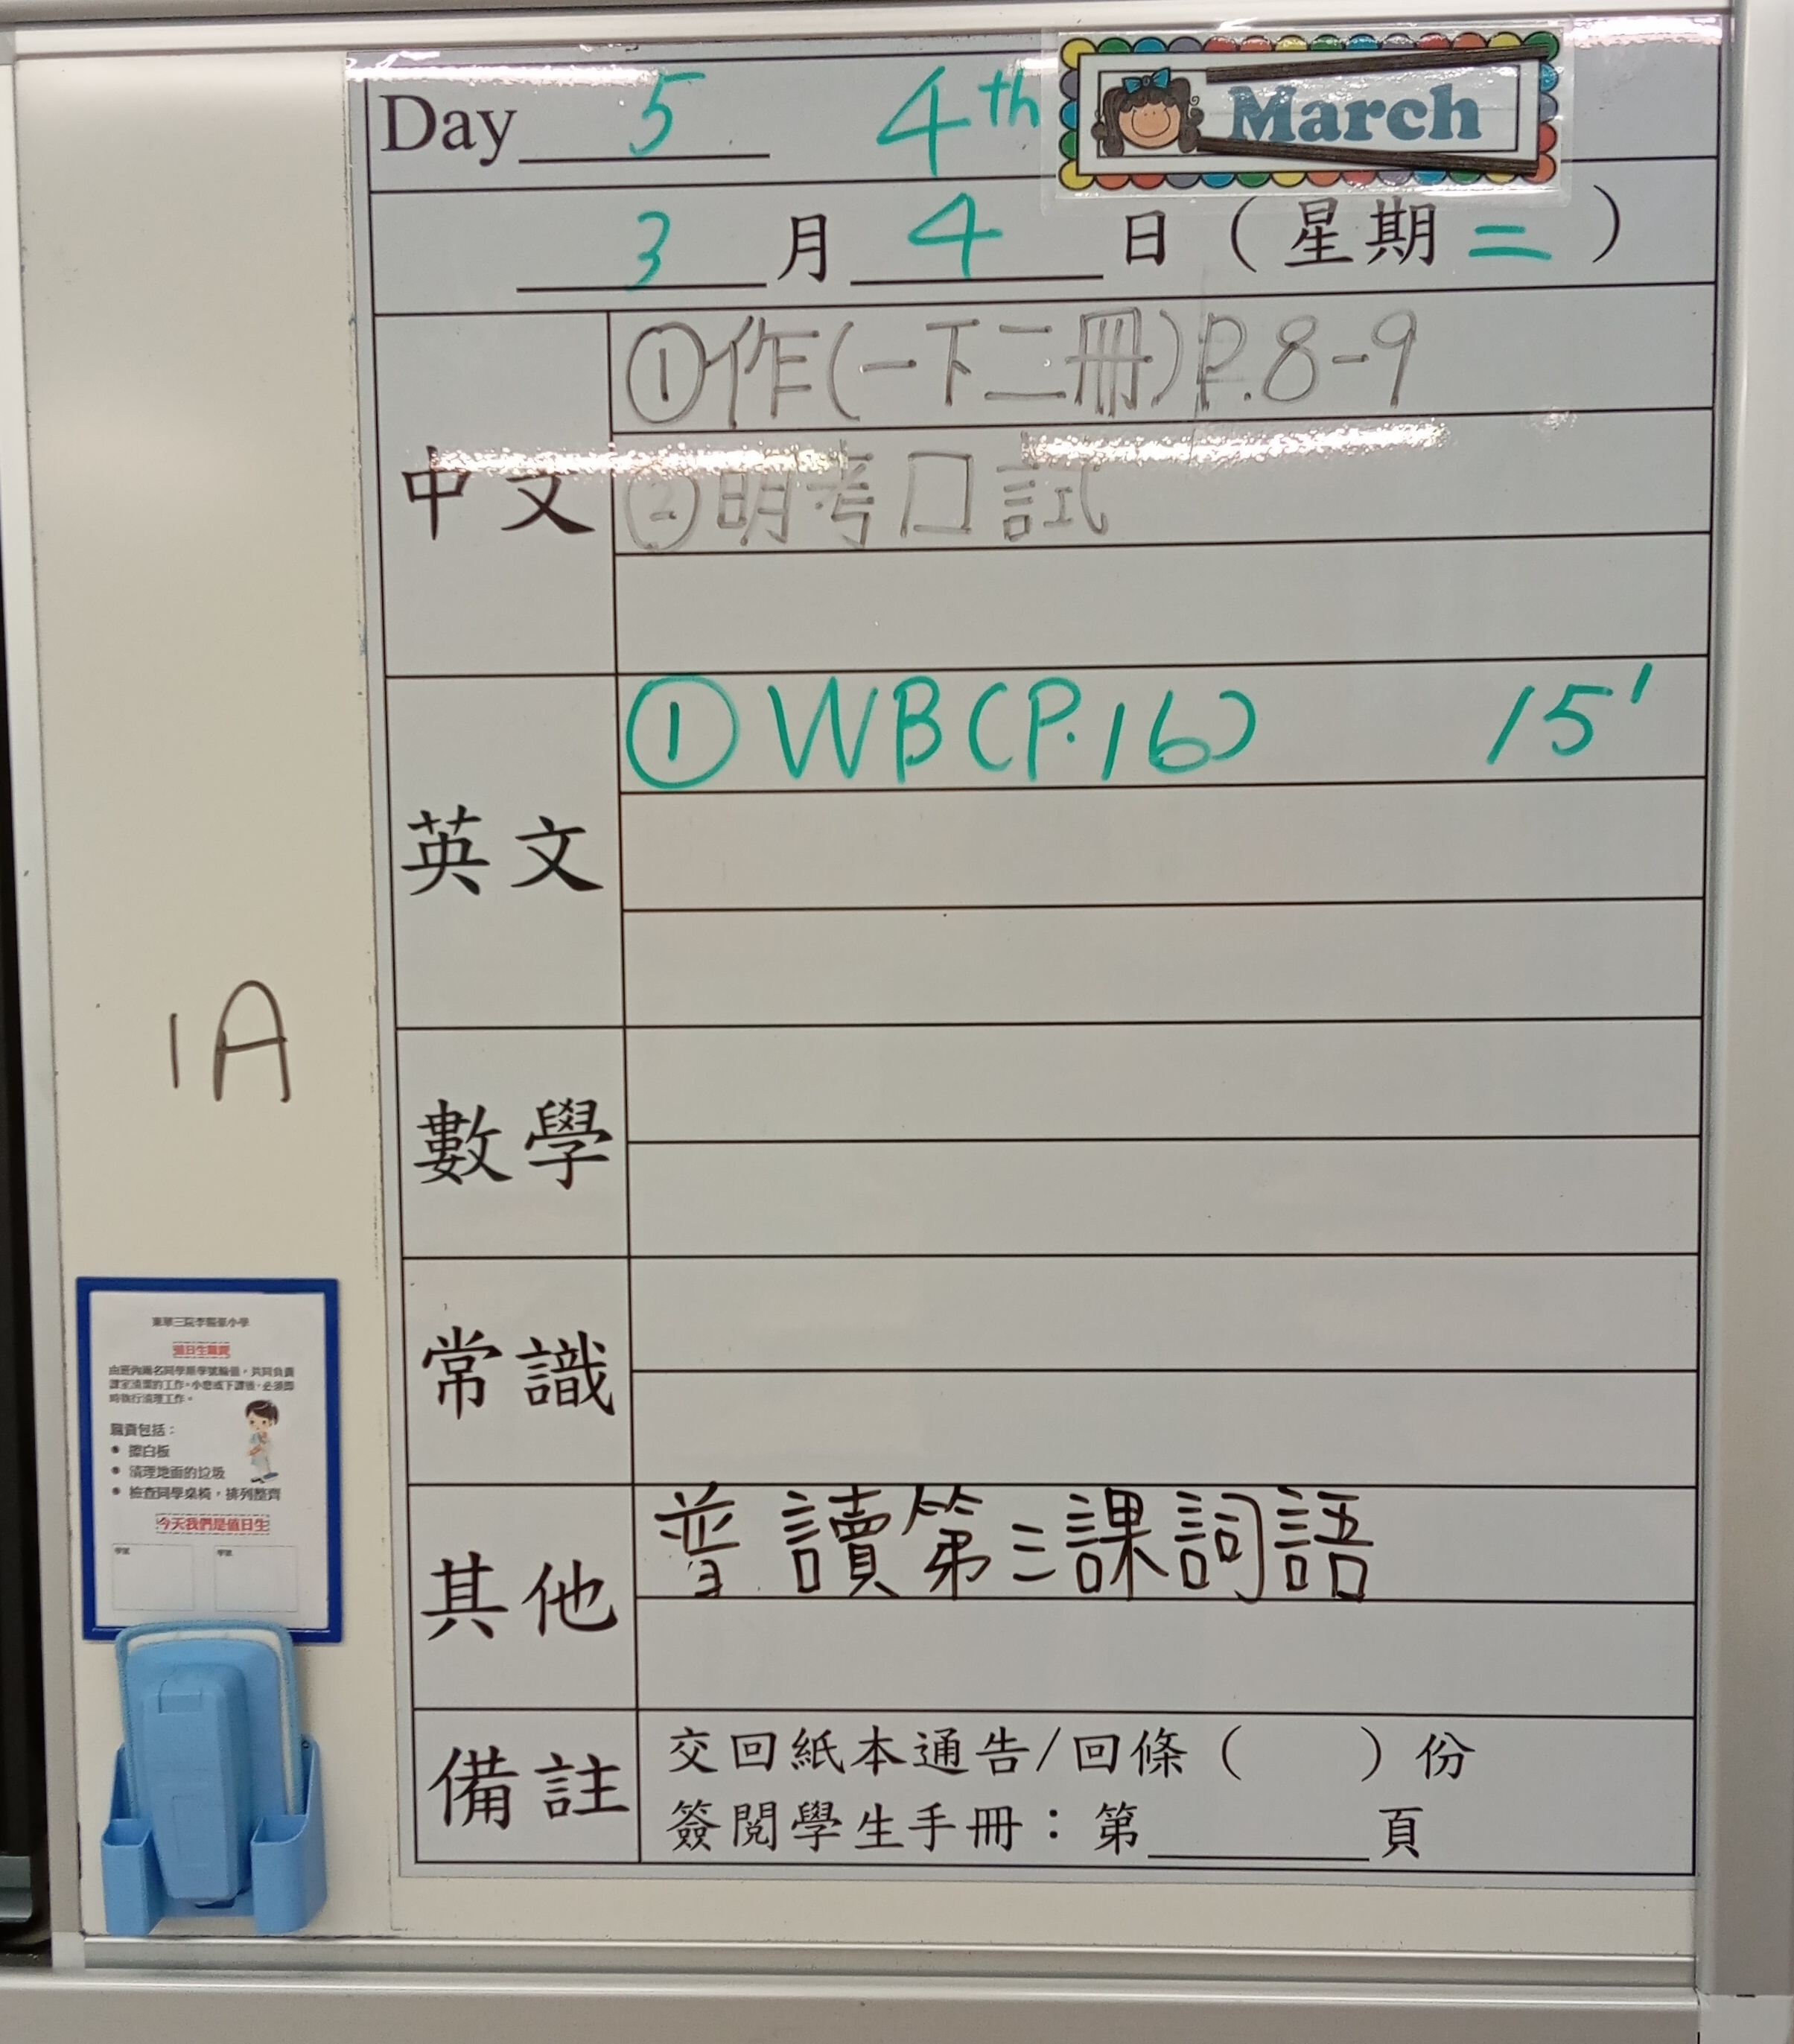 Day 5 4th March
3月4日(星期二)
中文
①作(一下二冊)P.8-9
②明考口試
英文
①WB(P.16) 15'
數學
常識
其他
普 讀第三課詞語
備註
交回紙本通告/回條( )份
簽閱學生手冊:第______頁
1A
值日生職責
由班內兩名同學順學號輪值,共同負責
課室清潔的工作。小息或下課後,必須即
時執行清理工作。
職責包括:
● 擦白板
● 清理地面的垃圾
● 檢查同學桌椅,排列整齊
今天我們是值日生
學號 學號